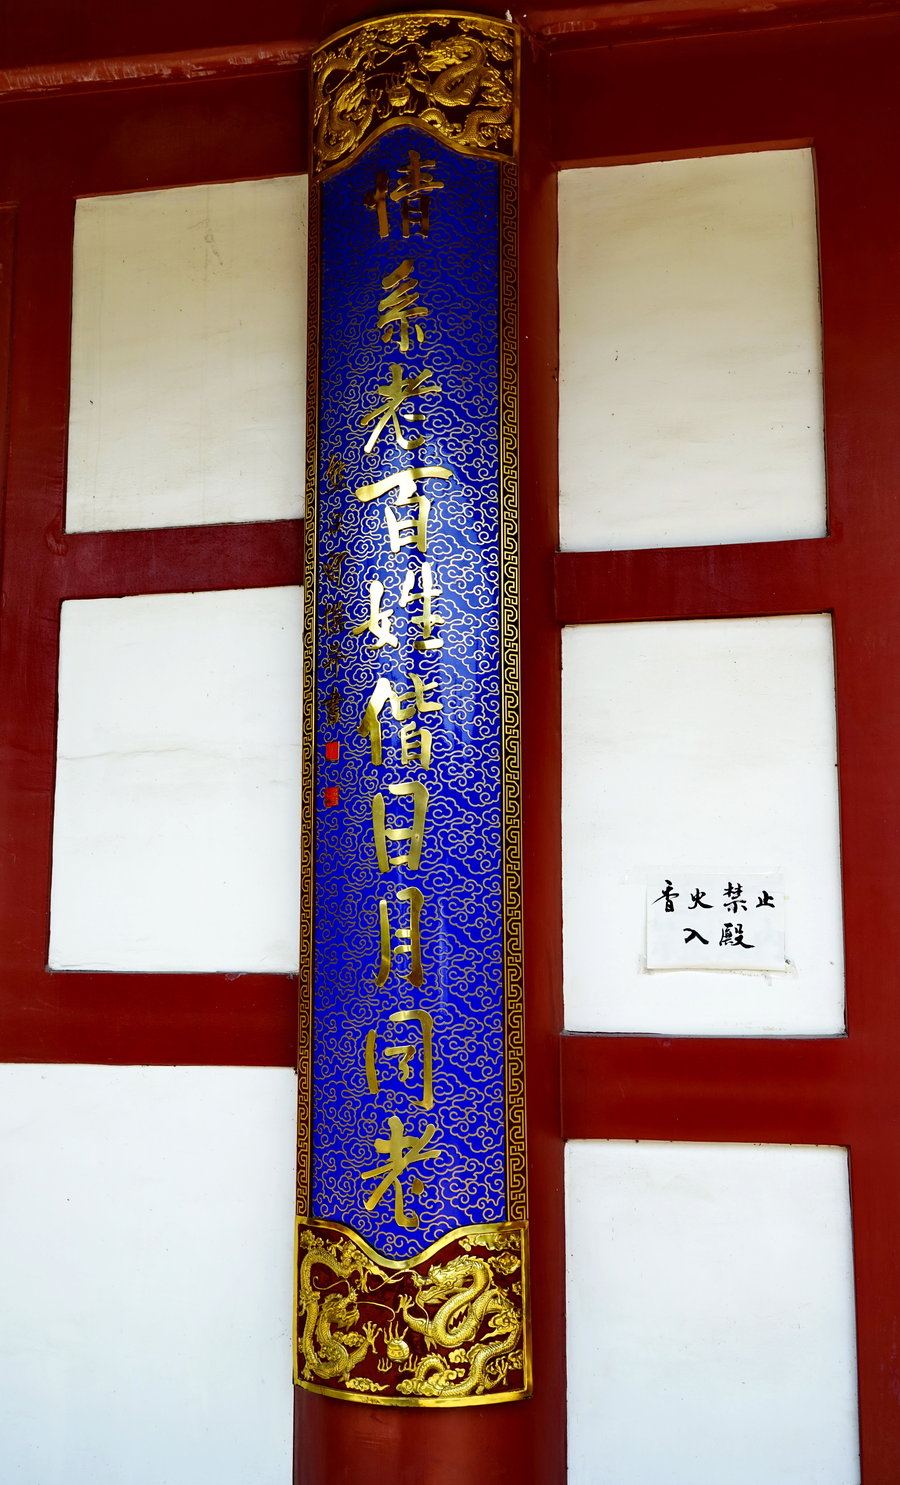 情系老百姓偕日月同老
香火禁止
入殿